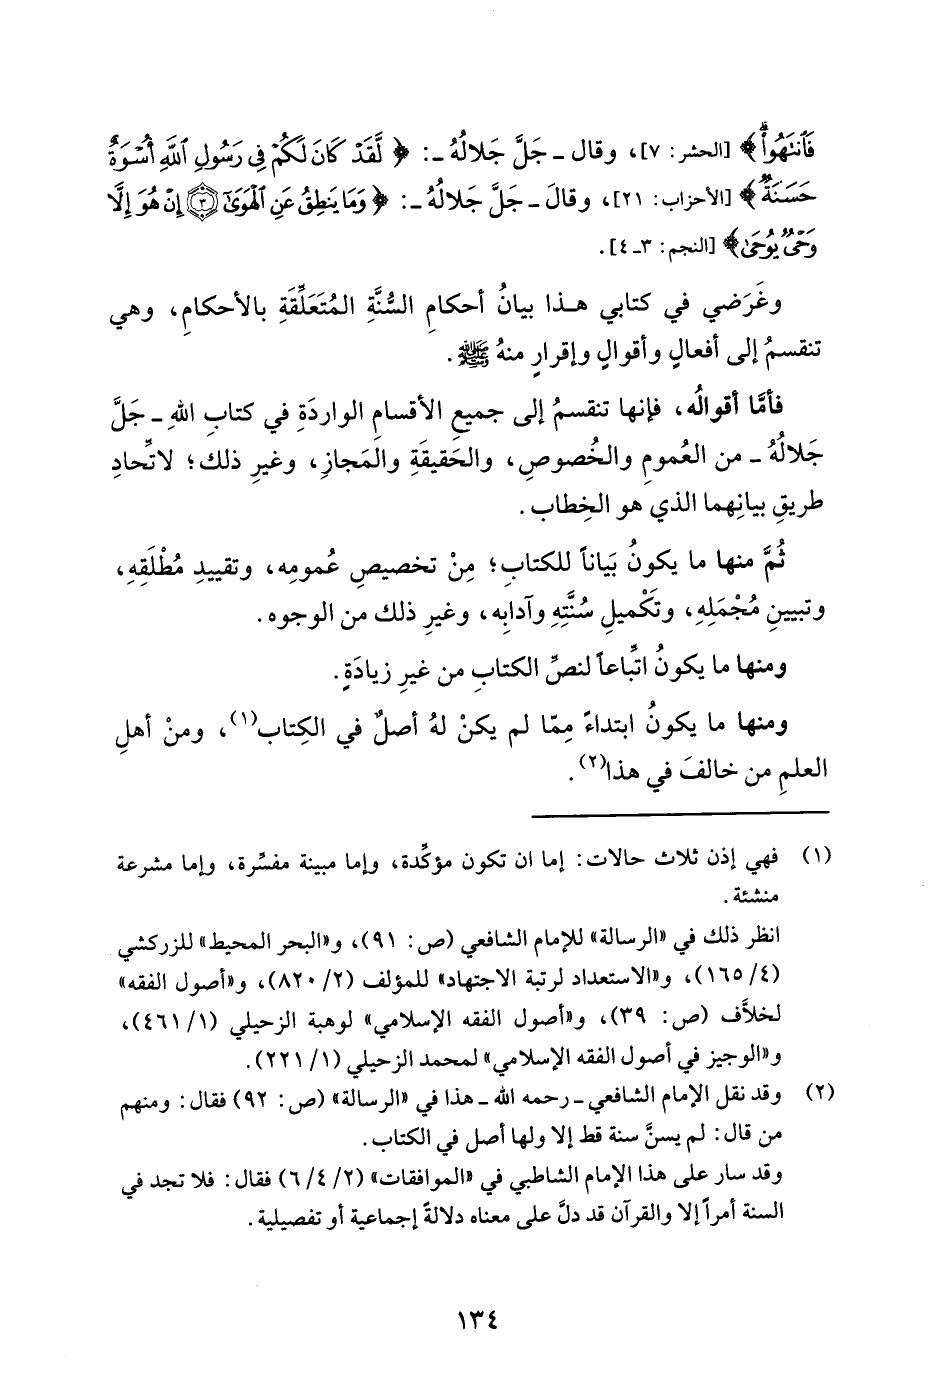 فَٱنتَهُوا۟ ﴾ [الحشر: ٧]، وقال ـ جَلَّ جَلالُهُ ـ: ﴿ لَّقَدْ كَانَ لَكُمْ فِى رَسُولِ ٱللَّهِ أُسْوَةٌ
حَسَنَةٌ ﴾ [الأحزاب: ٢١]، وقالَ ـ جَلَّ جَلالُهُ ـ: ﴿ وَمَا يَنطِقُ عَنِ ٱلْهَوَىٰٓ ۝٣ إِنْ هُوَ إِلَّا
وَحْىٌ يُوحَىٰ ﴾ [النجم: ٣ـ٤].
وغَرَضي في كتابي هـذا بيانُ أحكامِ السُّنَّةِ المُتَعَلِّقَةِ بالأحكامِ، وهي
تنقسمُ إلى أفعالٍ وأقوالٍ وإقرارٍ منهُ ﷺ.
فأمَّا أقوالُه، فإنها تنقسمُ إلى جميعِ الأقسامِ الواردَةِ في كتابِ اللهِ ـ جَلَّ
جَلالُهُ ـ من العُمومِ والخُصوصِ، والحَقيقَةِ والمَجازِ، وغيرِ ذلك؛ لاتِّحادِ
طريقِ بيانِهما الذي هو الخِطاب.
ثُمَّ منها ما يكونُ بَياناً للكتابِ؛ مِنْ تخصيصِ عُمومِه، وتقييدِ مُطْلَقِهِ،
وتبيينِ مُجْمَلِهِ، وتَكْميلِ سُنَّتِهِ وآدابِه، وغيرِ ذلك من الوجوه.
ومنها ما يكونُ اتِّباعاً لنصِّ الكتابِ من غيرِ زيادَةٍ.
ومنها ما يكونُ ابتداءً مِمّا لم يكنْ لهُ أصلٌ في الكِتاب(١)، ومنْ أهلِ
العلمِ من خالفَ في هذا(٢).
(١) فهي إذن ثلاث حالات: إما ان تكون مؤكِّدة، وإما مبينة مفسِّرة، وإما مشرعة
منشئة.
انظر ذلك في «الرسالة» للإمام الشافعي (ص: ٩١)، و«البحر المحيط» للزركشي
(٤/ ١٦٥)، و«الاستعداد لرتبة الاجتهاد» للمؤلف (٢/ ٨٢٠)، و«أصول الفقه»
لخلاَّف (ص: ٣٩)، و«أصول الفقه الإسلامي» لوهبة الزحيلي (١/ ٤٦١)،
و«الوجيز في أصول الفقه الإسلامي» لمحمد الزحيلي (١/ ٢٢١).
(٢) وقد نقل الإمام الشافعي ـ رحمه الله ـ هذا في «الرسالة» (ص: ٩٢) فقال: ومنهم
من قال: لم يسنَّ سنة قط إلا ولها أصل في الكتاب.
وقد سار على هذا الإمام الشاطبي في «الموافقات» (٢/ ٤/ ٦) فقال: فلا تجد في
السنة أمراً إلا والقرآن قد دلَّ على معناه دلالةً إجماعية أو تفصيلية.
١٣٤